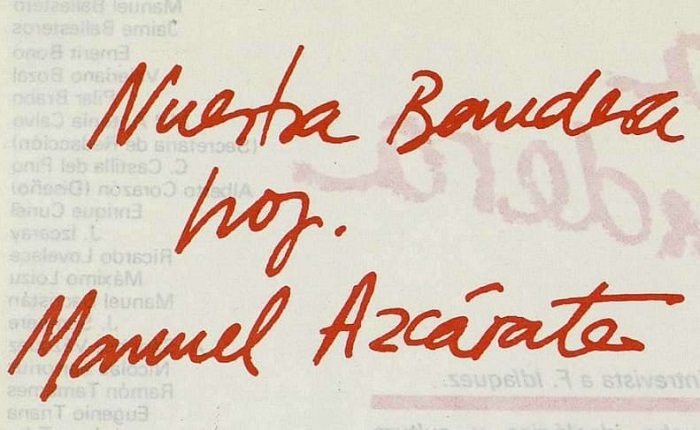 Nuestra Bandera
hoy.
Manuel Azcárate
Manuel Ballestero
Jaime Ballesteros
Emerit Bono
Valeriano Bozal
Pilar Brabo
Calvo
(Secretaria de Redacción)
C. Castilla del Pino
Alberto Corazón (Diseño)
Enrique Curiel
J. Izcaray
Ricardo Lovelace
Máximo Loizu
Manuel
J.
Ramón Tamames
Eugenio Triana
Entrevista a F. Idiaquez.